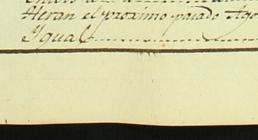 Heran el proximo pasado Ago
Igual